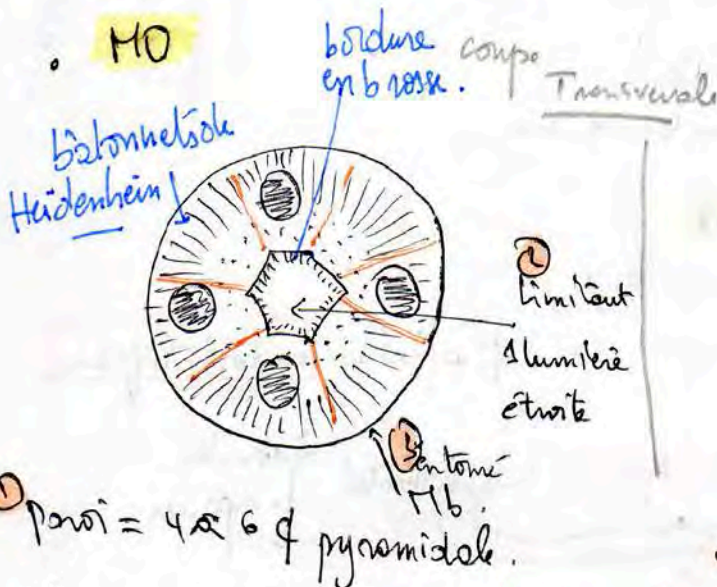 • MO
bordure
en brosse.
coupe
Transversale
bâtonnets de
Heidenhein
② limitant
1 lumière
étroite
③ entouré
Mb.
① paroi = 4 à 6 ¢ pyramidale.